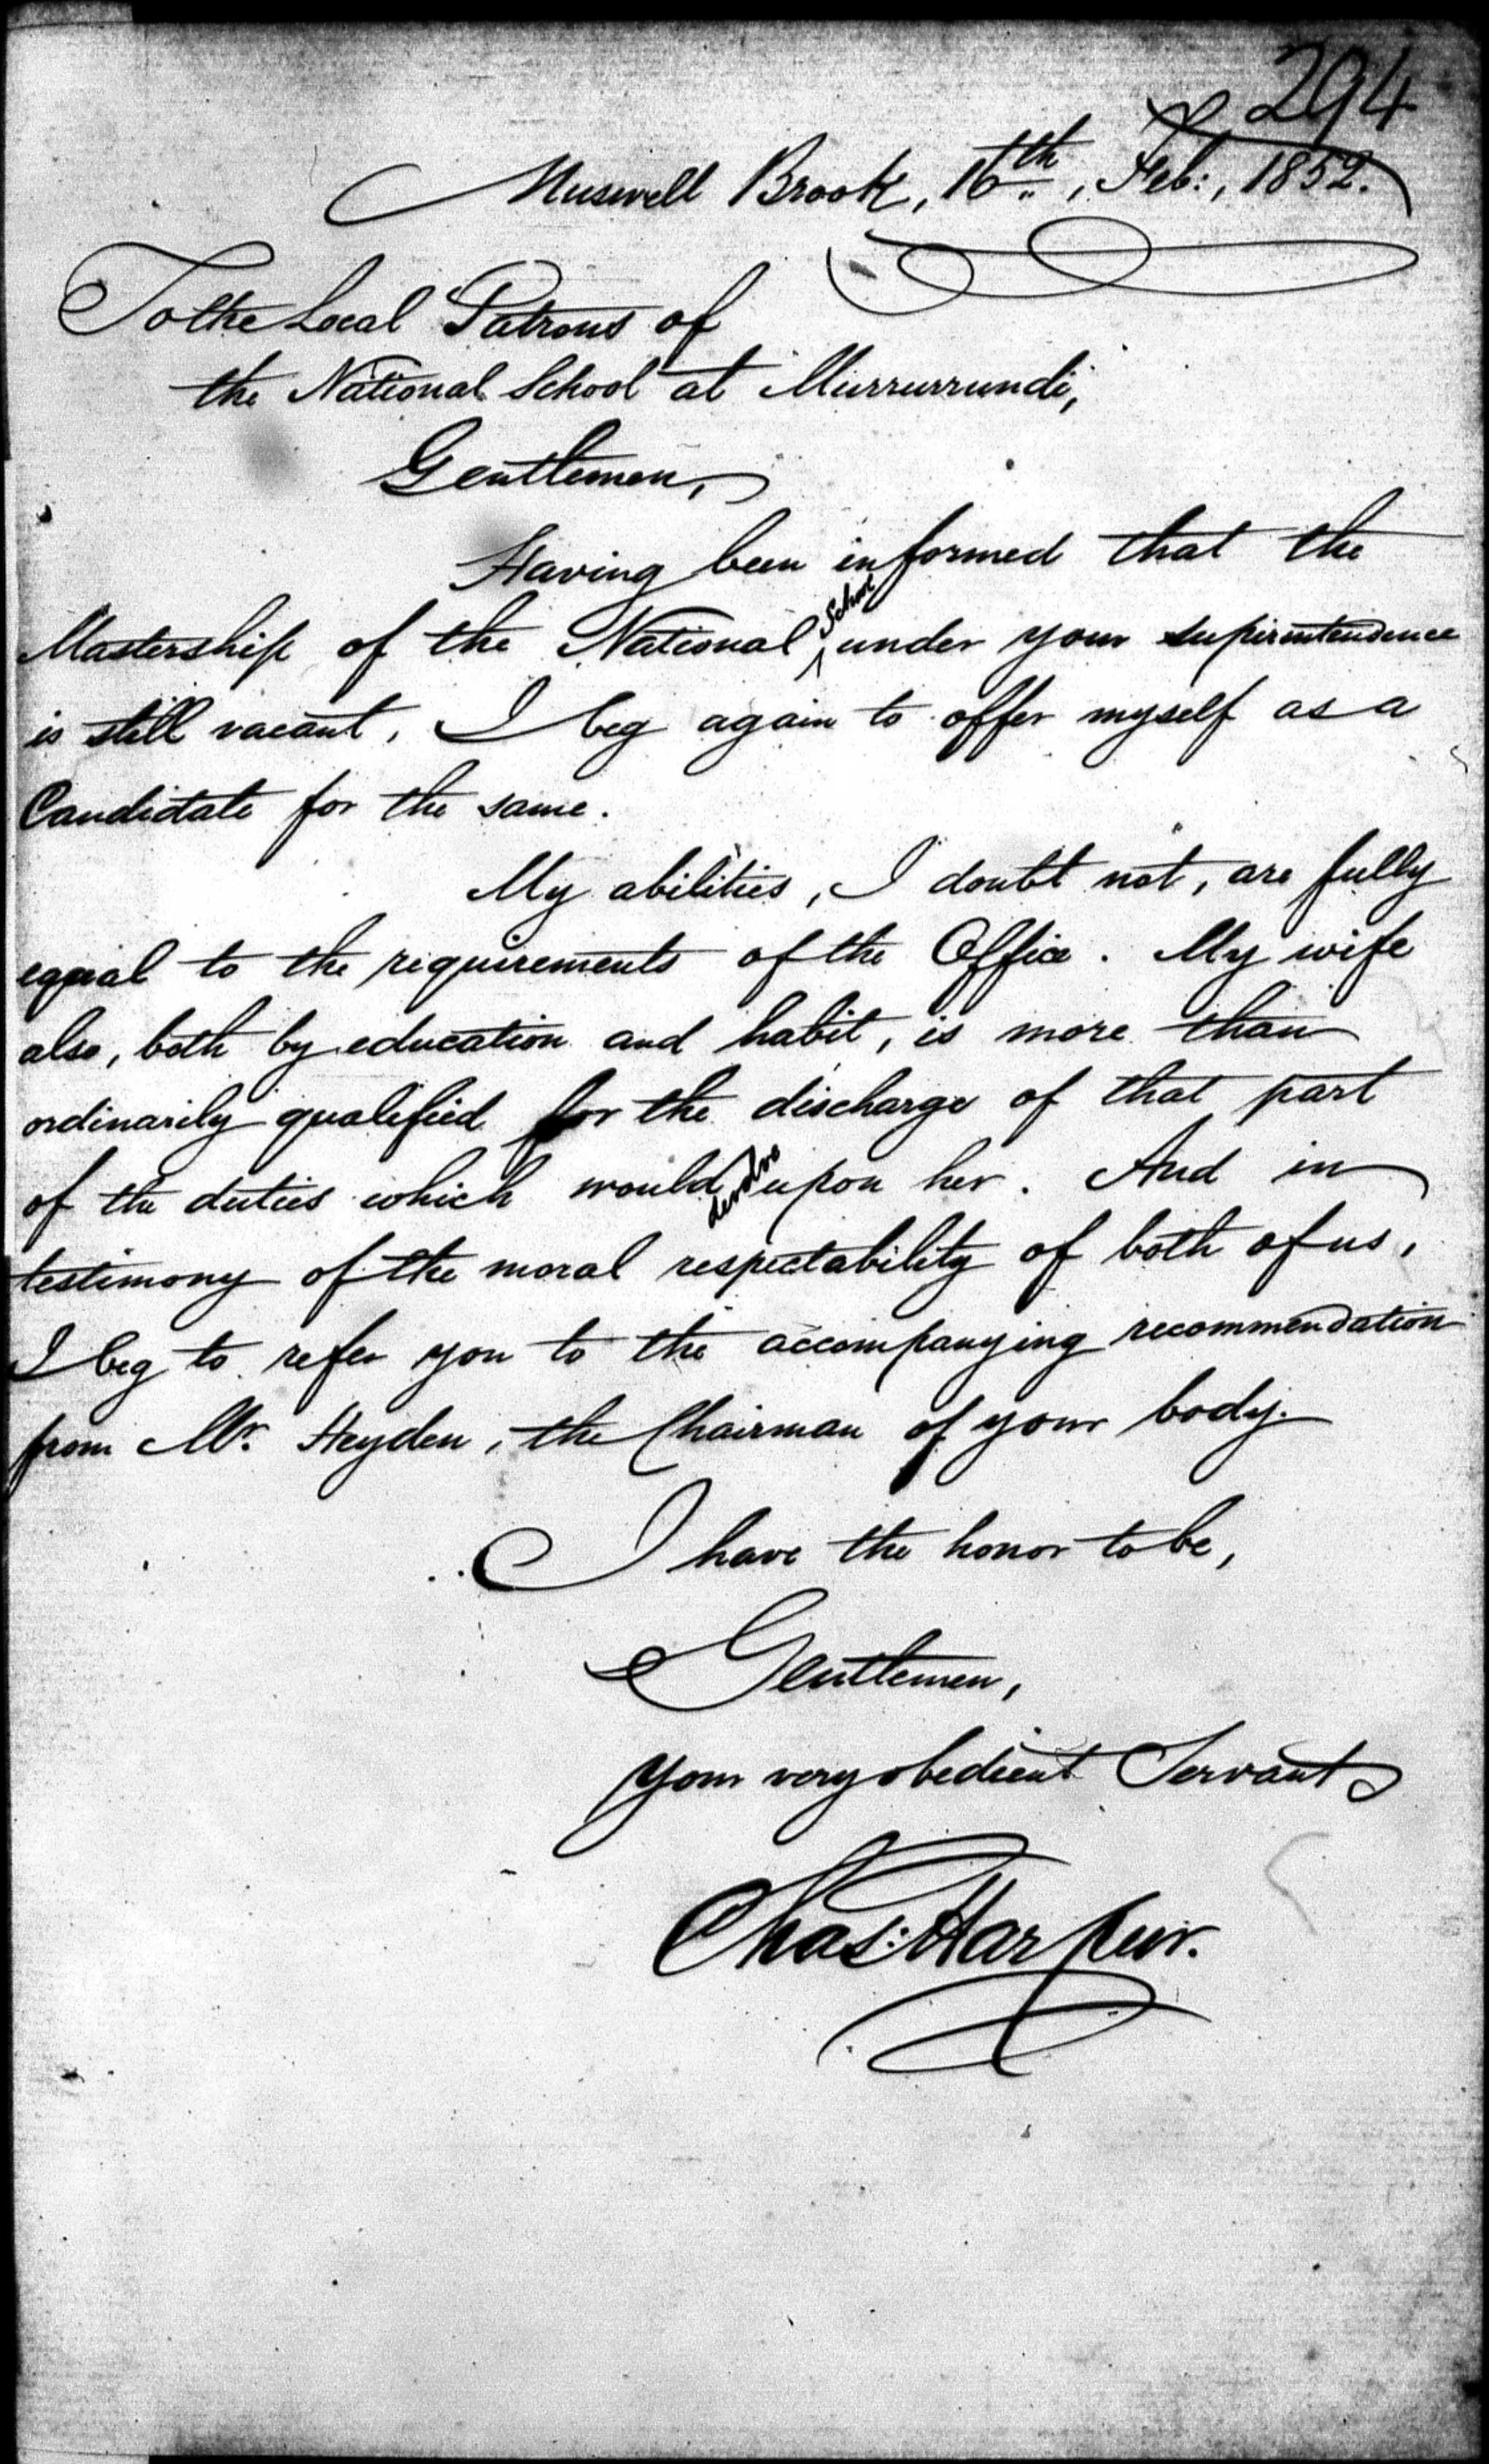 294
Muswell Brook, 16th, Feb:, 1852.
To the Local Patrons of
the National School at Murrurrundi,
Gentlemen,
Having been informed that the
Mastership of the National School under your superintendence
is still vacant, I beg again to offer myself as a
Candidate for the same.
My abilities, I doubt not, are fully
equal to the requirements of the Office. My wife
also, both by education and habit, is more than
ordinarily qualified for the discharge of that part
of the duties which would devolve upon her. And in
testimony of the moral respectability of both of us,
I beg to refer you to the accompanying recommendation
from Mr. Heyden, the Chairman of your body.
I have the honor to be,
Gentlemen,
your very obedient Servant
Chas: Harpur.